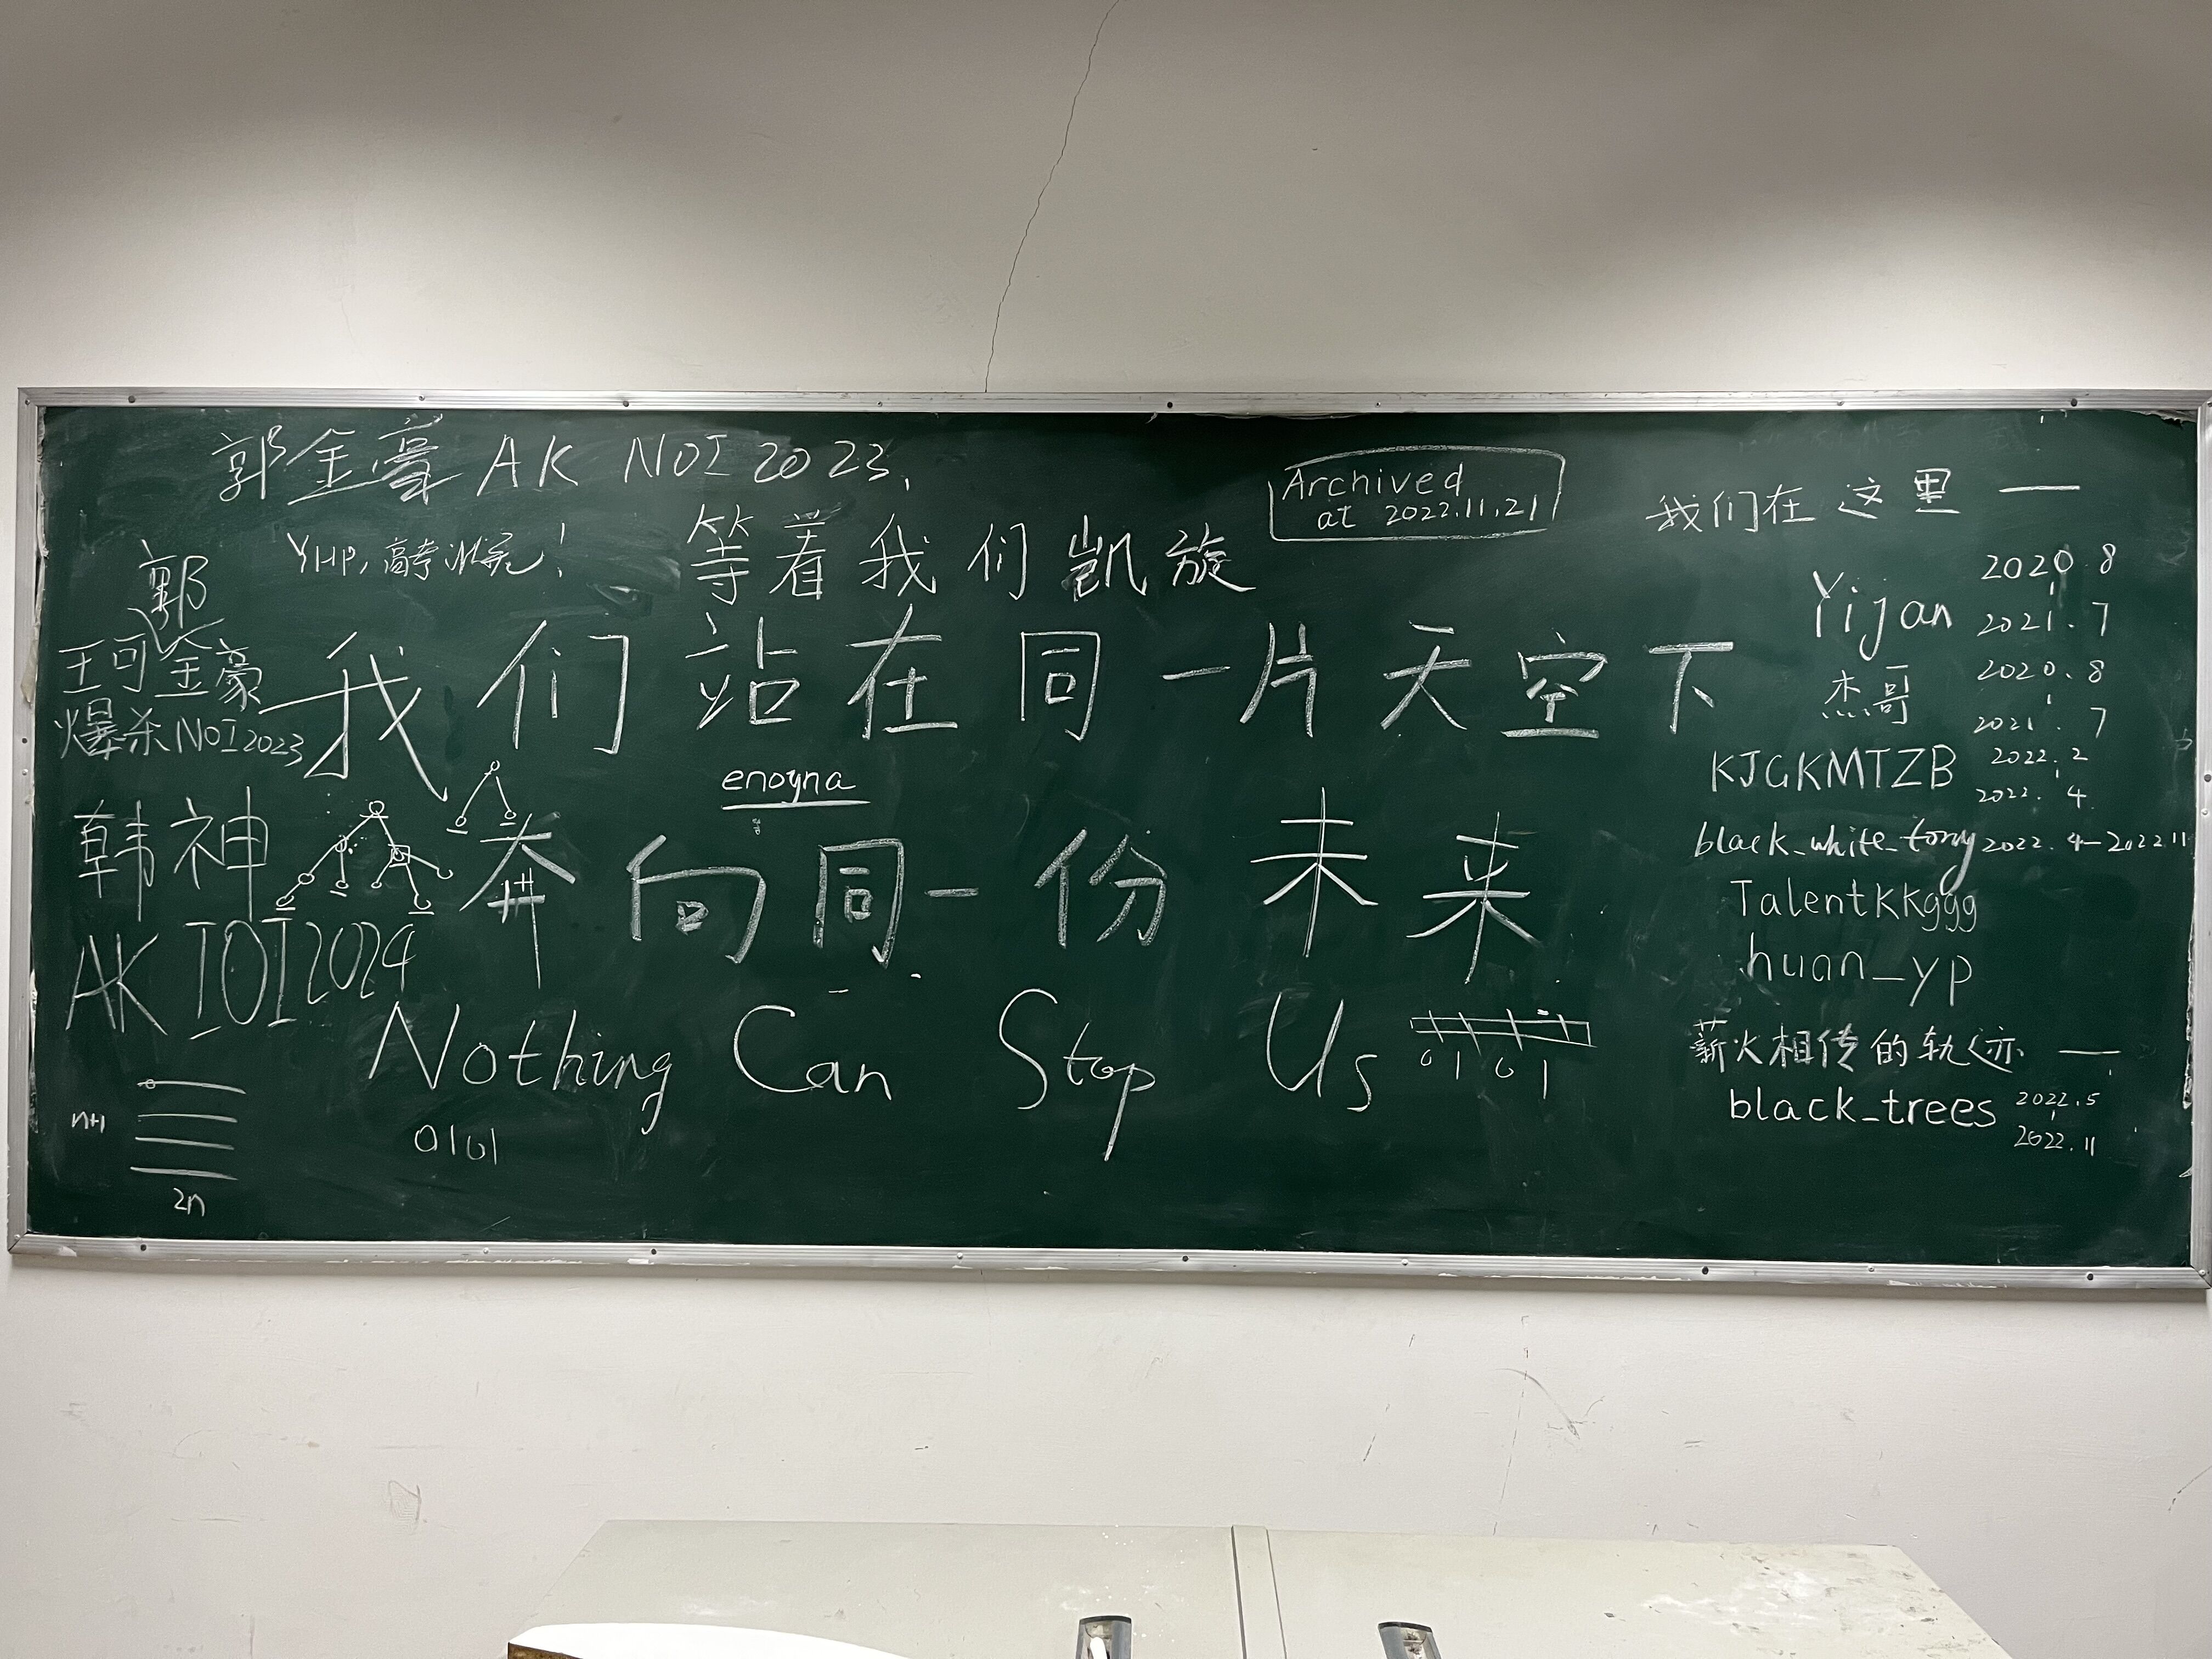 郭金豪 AK NOI 2023,
YHP,高考加油!
等着我们凯旋
Archived
at 2022.11.21
郭
王可金豪
爆杀NOI2023
我们站在同一片天空下
enoyna
韩神
AK IOI2024
奔向同一份未来
Nothing Can Stop Us
0 1 0 1
0101
n+1
2n
我们在这里——
Yijan 2020.8
2021.7
杰哥 2020.8
2021.7
KJGKMTZB 2022.2
2022.4
black_white_tony 2022.4-2022.11
TalentKKggg
huan_yp
薪火相传的轨迹——
black_trees 2022.5
2022.11